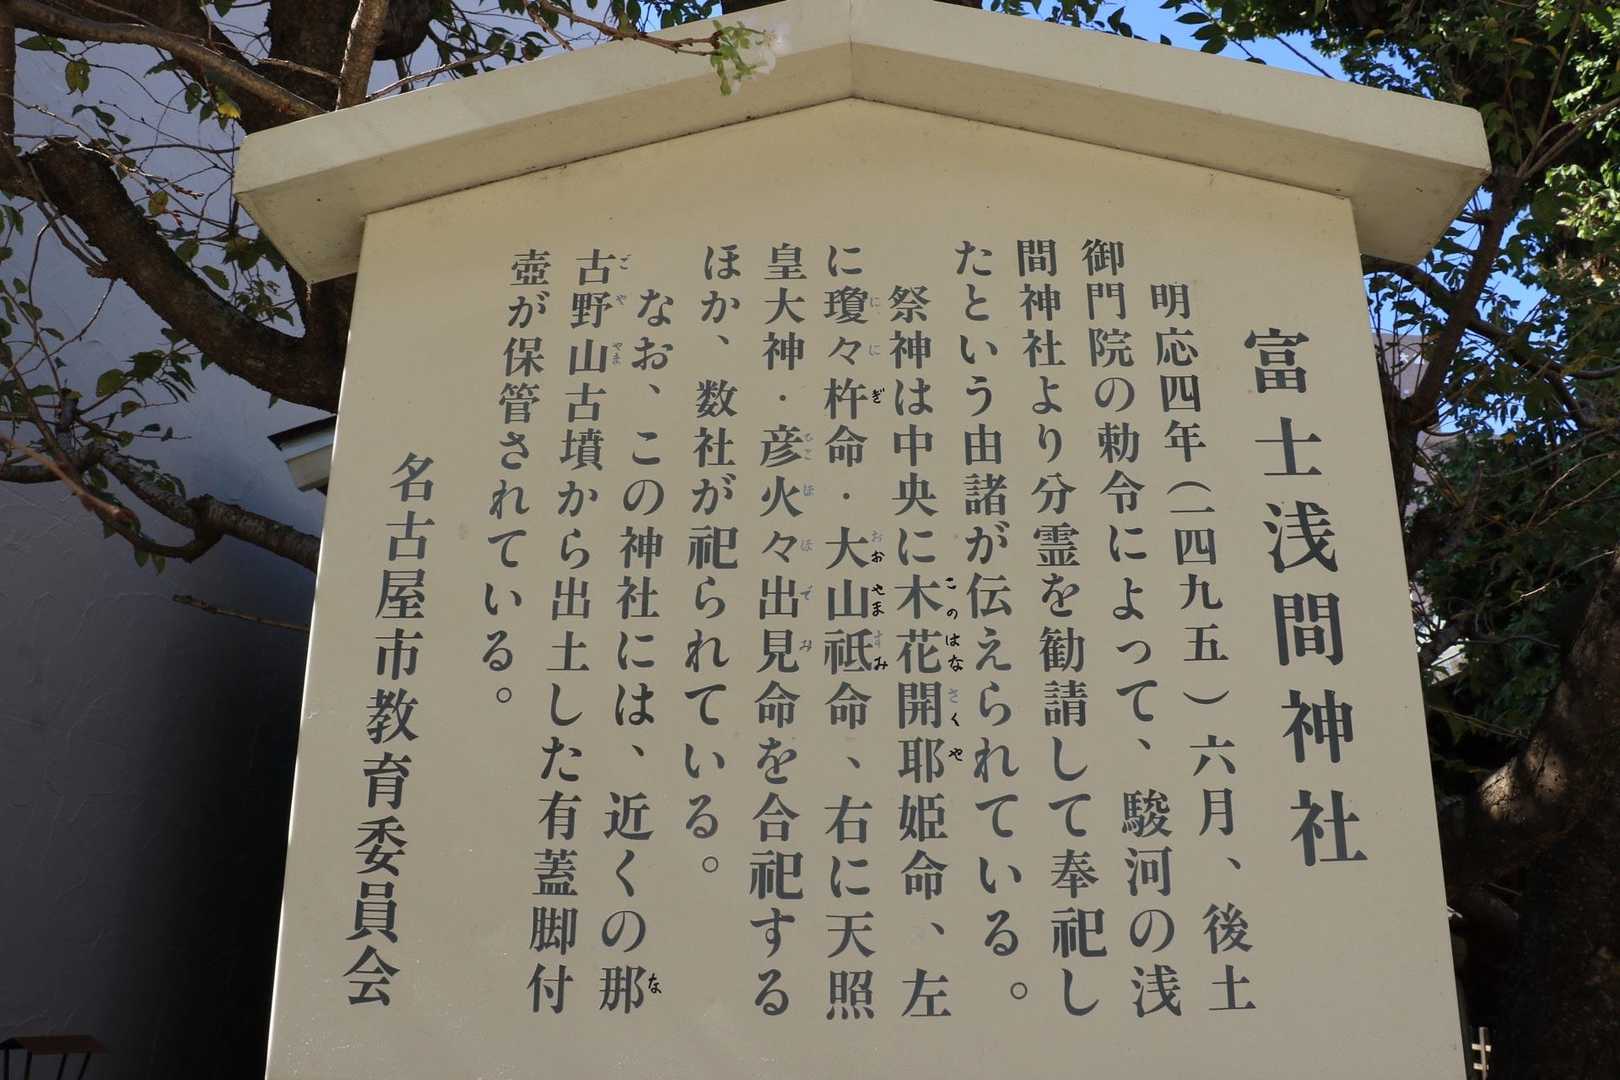 富士浅間神社
明応四年（一四九五）六月、後土
御門院の勅令によって、駿河の浅
間神社より分霊を勧請して奉祀し
たという由諸が伝えられている。
祭神は中央に木花開耶姫命、左
に瓊々杵命・大山祗命、右に天照
皇大神・彦火々出見命を合祀する
ほか、数社が祀られている。
なお、この神社には、近くの那
古野山古墳から出土した有蓋脚付
壺が保管されている。
名古屋市教育委員会